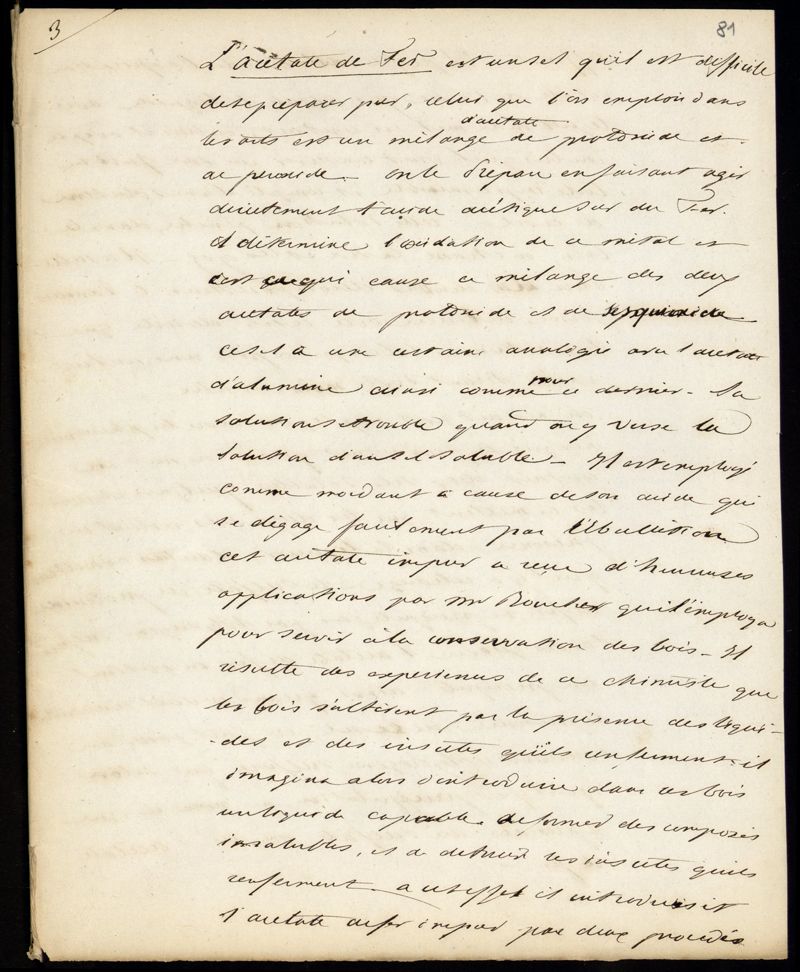 3
81
L'acétate de Fer est un sel qu'il est difficile
de se préparer pur, celui que l'on emploi dans
d'acétate
les arts est un mélange de protoxide et
de peroxide. on le Prépare en faisant agir
directement l'acide acétique sur du Fer.
Il détermine l'oxidation de ce métal et
c'est ce qui cause ce mélange des deux
acétates de protoxide et de sesquioxide
ce sel a une certaine analogie avec l'acétate
d'alumine ainsi comme pour ce dernier. Sa
solution se trouble quand on y verse la
solution d'un sel soluble. Il est employé
comme mordant à cause de son acide qui
se dégage facilement par l'ébullition
cet acétate impur a reçu d'heureuses
applications par mr Boucher qui l'employa
pour servir à la conservation des bois. Il
résulte des experiences de ce chimiste que
les bois s'altèrent par la présence des liqui-
-des et des insectes qu'ils renferment. il
imagina alors d'introduire dans ces bois
un liquide capable de former des composés
insolubles, et de detruire les insectes qu'ils
renferment. a cet effet il introduisit
l'acétate de fer impur par deux procédés